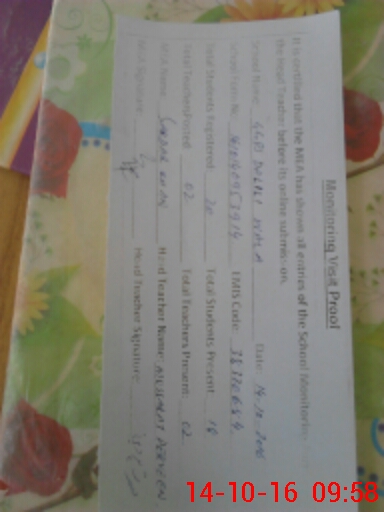 Monitoring Visit Proof
It is certified that the MEA has shown all entries of the School Monitoring
the Head Teacher before its online submission.
School Name: GGPS Date: 14-10-2016
School Form No. EMIS Code:
Total Students Registered: 20 Total Students Present: 18
Total Teachers Posted: 02 Total Teachers Present: 02
MEA Name: Head Teacher Name: MUSSARAT PERVEEN
MEA Signature: Head Teacher Signature:
14-10-16 09:58